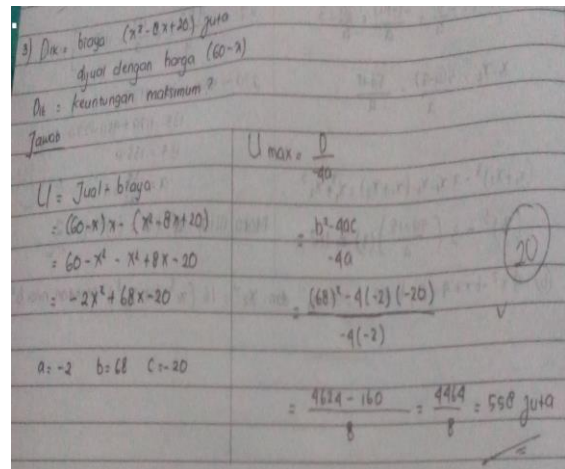 3) Dik = biaya (x² - 8x + 20) juta
dijual dengan harga (60 - x)
Dit : keuntungan maksimum?
Jawab
U = Jual - biaya
= (60-x)x - (x² - 8x + 20)
= 60 - x² - x² + 8x - 20
= -2x² + 68x - 20
a = -2 b = 68 c = -20
U max = D / -4a
= b² - 4ac / -4a
= (68)² - 4(-2)(-20) / -4(-2)
= 4624 - 160 / 8 = 4464 / 8 = 558 juta
20